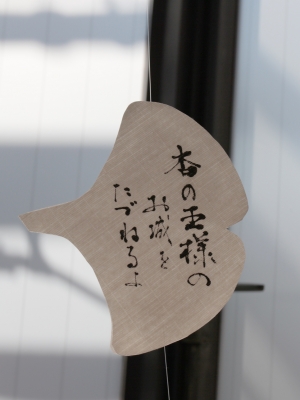 杳の王様の
お城を
たづねるよ